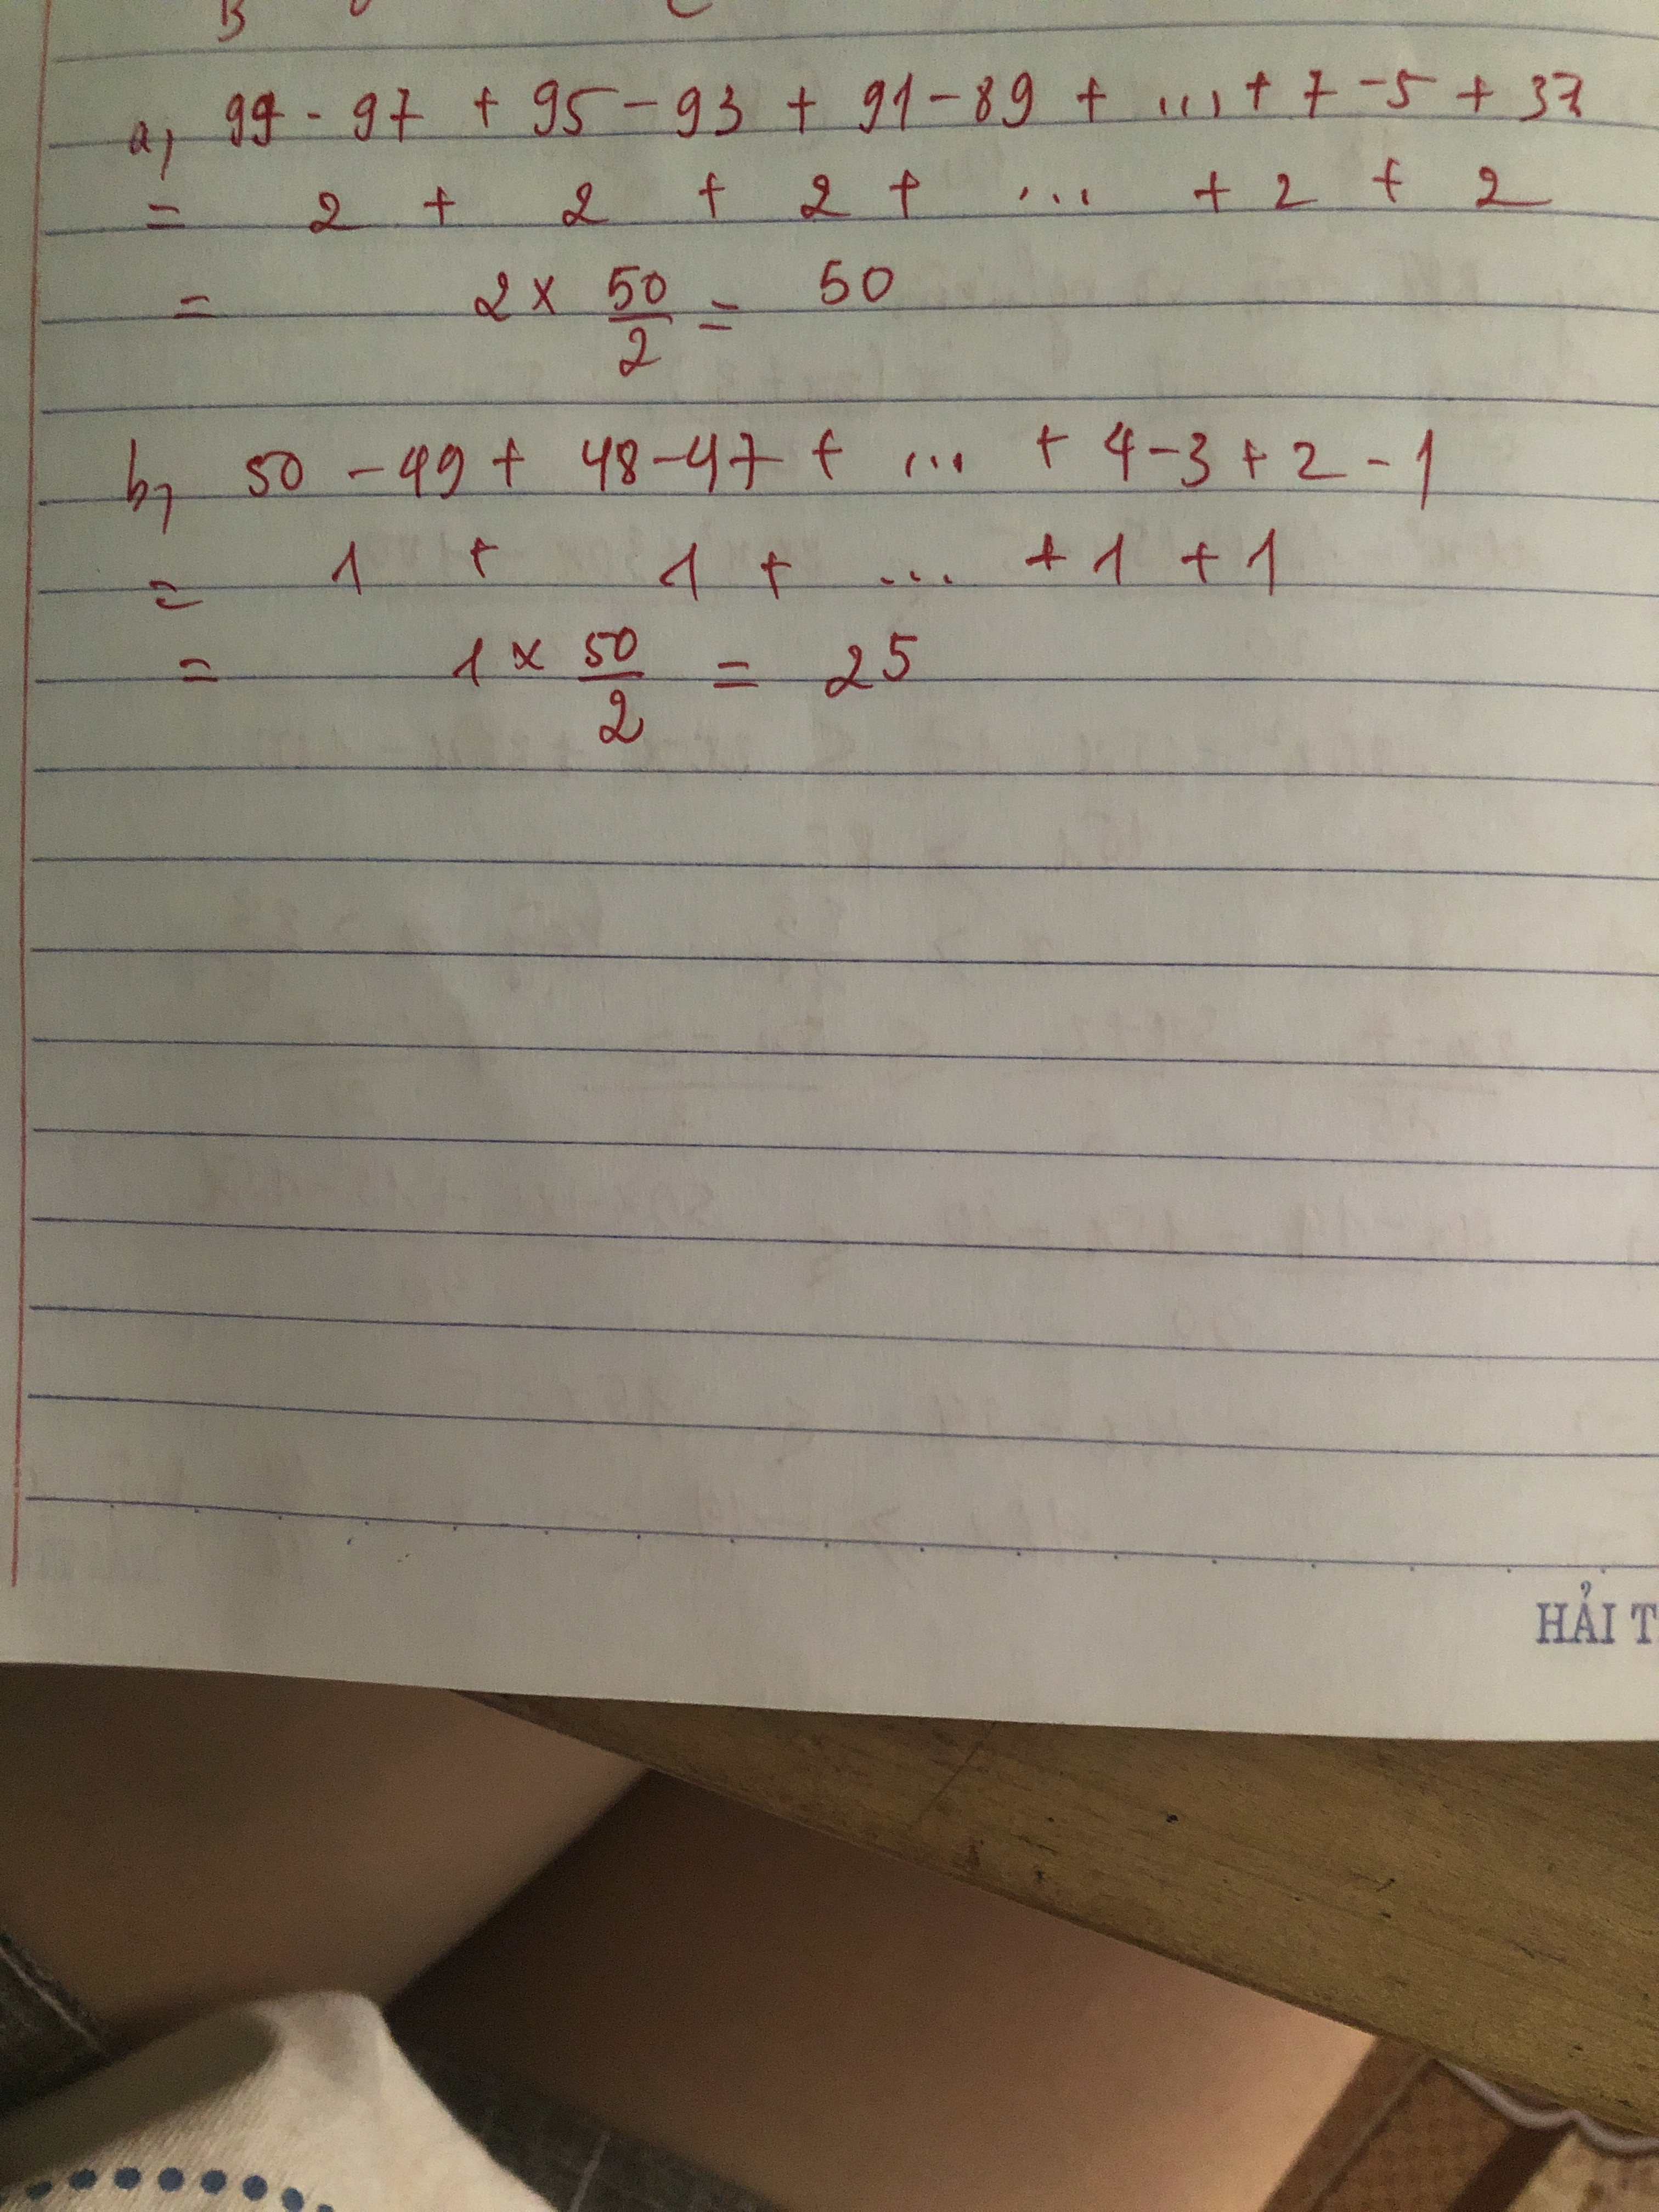 B
a, 99 - 97 + 95 - 93 + 91 - 89 + ... + 7 - 5 + 3
= 2 + 2 + 2 + ... + 2 + 2
= 2 x 50/2 = 50
b, 50 - 49 + 48 - 47 + ... + 4 - 3 + 2 - 1
= 1 + 1 + ... + 1 + 1
= 1 x 50/2 = 25
HẢI T